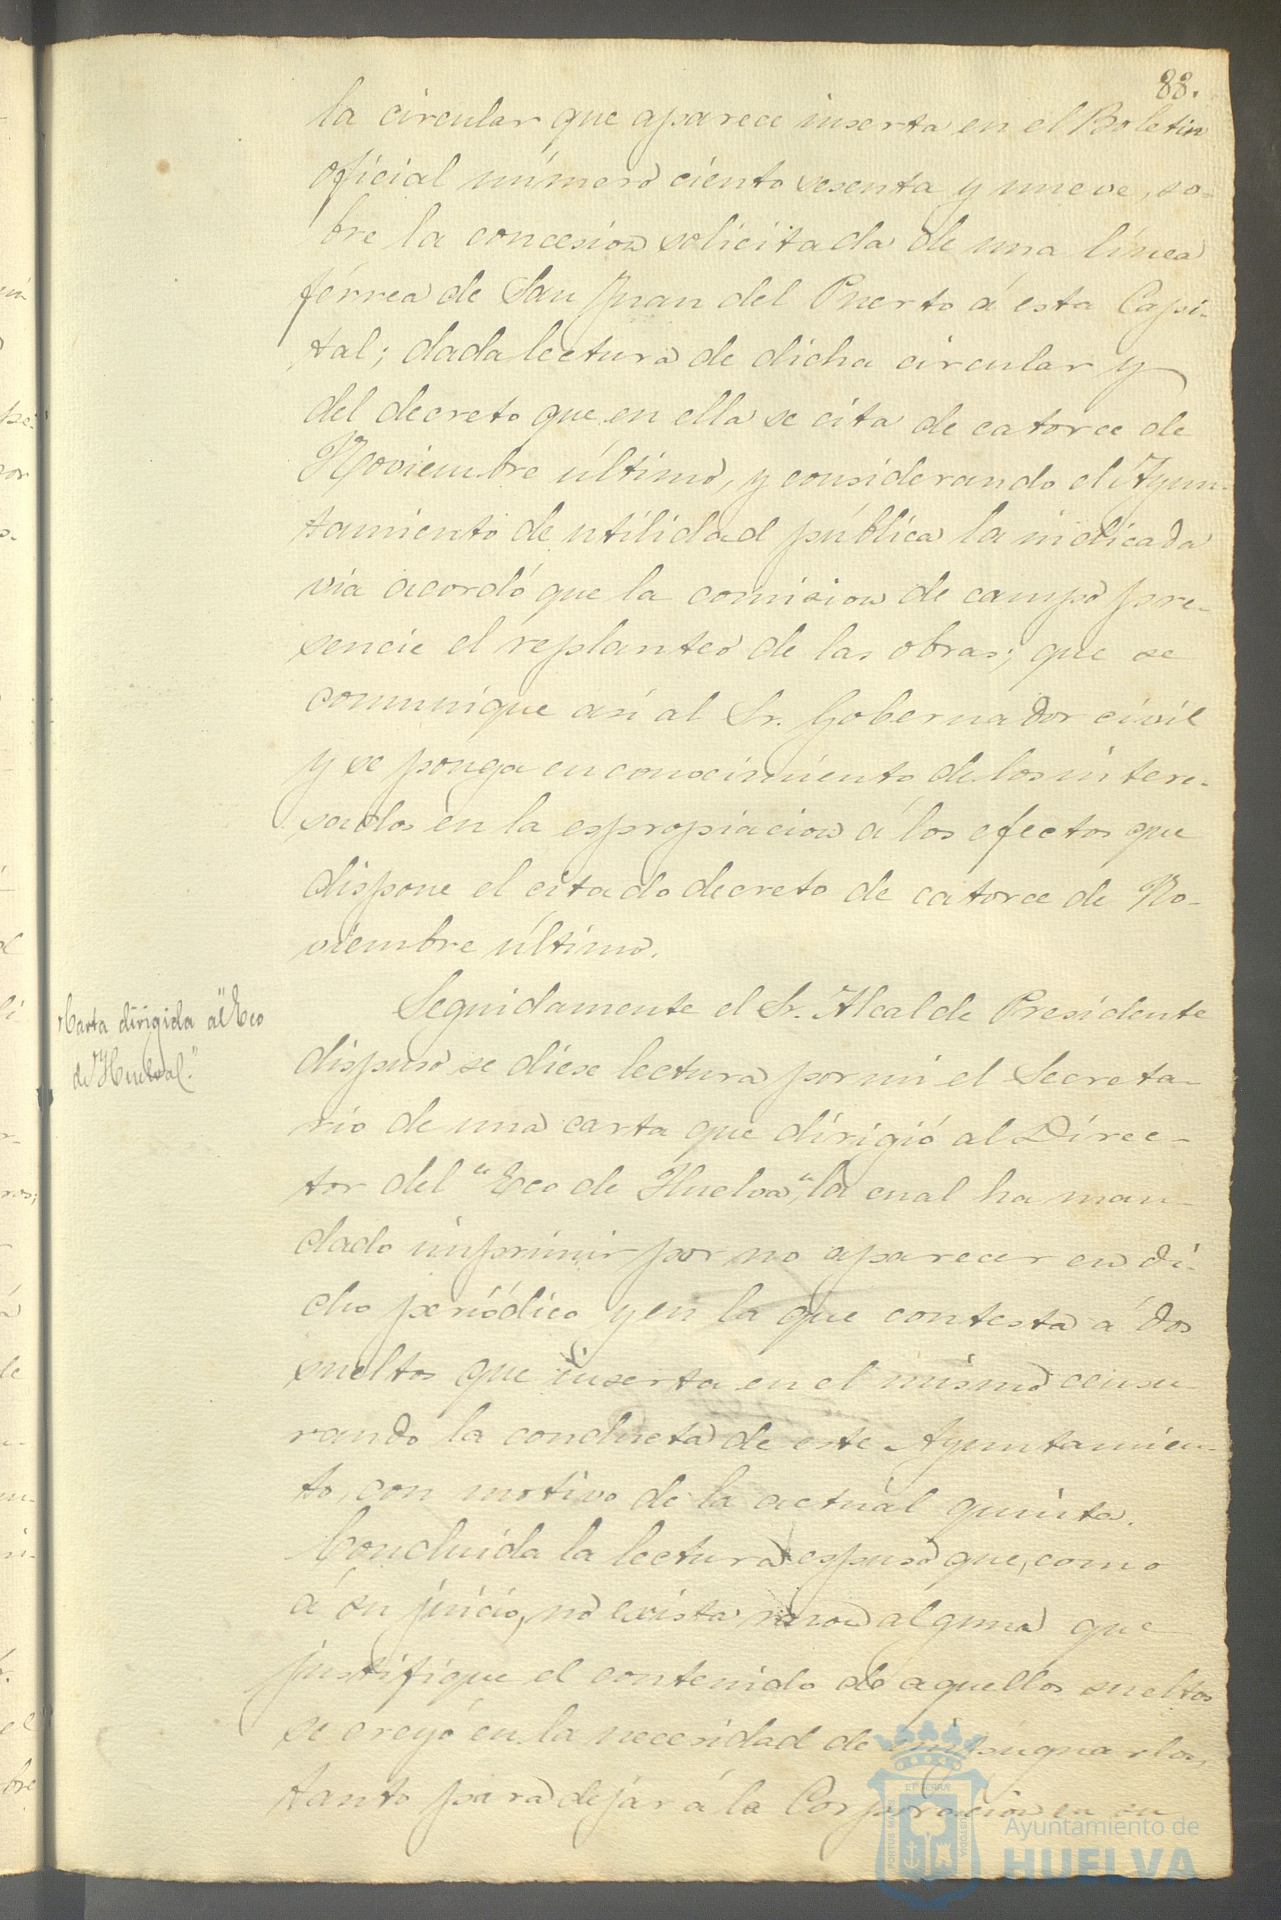 88.
la circular que aparece inserta en el Boletin
oficial número ciento sesenta y nueve, so-
bre la concesion solicitada de una línea
férrea de San Juan del Puerto á esta Capi-
tal; dada lectura de dicha circular y
del decreto que en ella se cita de catorce de
Noviembre último, y considerando el Ayun-
tamiento de utilidad pública la indicada
via acordó que la comision de campo pre-
sencie el replanteo de las obras; que se
comunique así al Sr. Gobernador civil
y se ponga en conocimiento de los intere-
sados en la espropiacion á los efectos que
dispone el citado decreto de catorce de No-
viembre último.
Carta dirigida al "Eco
de Huelva".
Seguidamente el Sr. Alcalde Presidente
dispuso se diese lectura por mi el Secreta-
rio de una carta que dirigió al Direc-
tor del "Eco de Huelva", la cual ha man-
dado imprimir por no aparecer en di-
cho periódico y en la que contesta á dos
sueltos que inserta en el mismo censu-
rando la conducta de este Ayuntamien-
to, con motivo de la actual quinta.
Concluida la lectura espuso que, como
á su juicio, no exista razon alguna que
justifique el contenido de aquellos sueltos
se creyó en la necesidad de impugnarlos,
tanto para dejar á la Corporacion en su
Ayuntamiento de
HUELVA